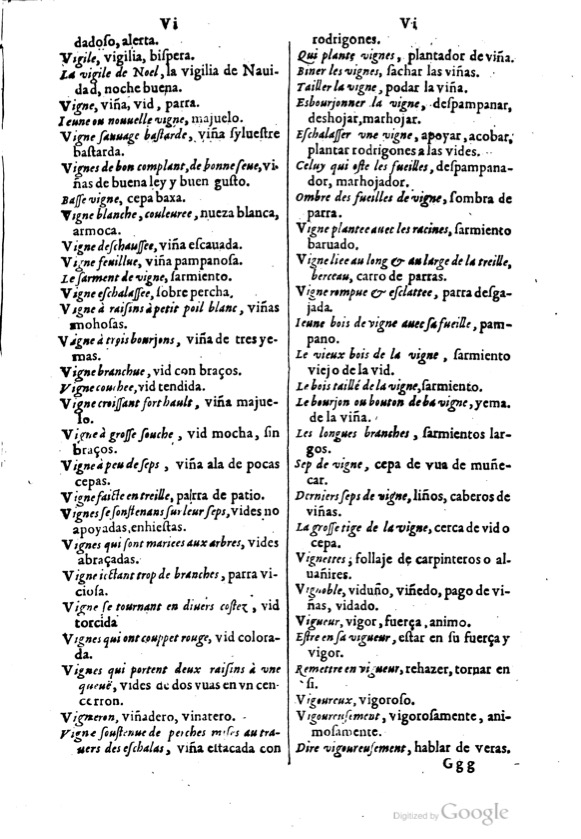 Vi
dadoſo, alerta.
Vigile, vigilia, biſpera.
La vigile de Noel, la vigilia de Naui-
dad, noche buena.
Vigne, viña, vid, parra.
Ieune ou nouuelle vigne, majuelo.
Vigne ſauuage baſtarde, viña ſylueſtre
baſtarda.
Vignes de bon complant, de bonne ſeue, vi-
ñas de buena ley y buen guſto.
Baſſe vigne, cepa baxa.
Vigne blanche, couleuree, nueza blanca,
armoca.
Vigne deſchauſſee, viña eſcauada.
Vigne feuillue, viña pampanoſa.
Le ſarment de vigne, ſarmiento.
Vigne eſchalaſſee, ſobre percha.
Vigne à raiſins à petit poil blanc, viñas
mohoſas.
Vigne à trois bourjons, viña de tres ye-
mas.
Vigne branchue, vid con braços.
Vigne couchee, vid tendida.
Vigne croiſſant fort hault, viña majue-
lo.
Vigne à groſſe ſouche, vid mocha, ſin
braços.
Vigne à peu de ſeps, viña ala de pocas
cepas.
Vigne faicte en treille, parra de patio.
Vignes ſe ſonſtenans ſur leur ſeps, vides no
apoyadas, enhieſtas.
Vignes qui ſont mariees aux arbres, vides
abraçadas.
Vigne iectant trop de branches, parra vi-
cioſa.
Vigne ſe tournant en diuers coſtez, vid
torcida
Vignes qui ont couppet rouge, vid colora-
da.
Vignes qui portent deux raiſins à vne
queuë, vides de dos vuas en vn cen-
cerron.
Vigneron, viñadero, vinatero.
Vigne ſouſtenue de perches miſes au tra-
uers des eſchalas, viña eſtacada con
Vi
rodrigones.
Qui plante vignes, plantador de viña.
Biner les vignes, ſachar las viñas.
Tailler la vigne, podar la viña.
Esbourjonner la vigne, deſpampanar,
deshojar, marhojar.
Eſchalaſſer vne vigne, apoyar, acobar,
plantar rodrigones a las vides.
Celuy qui oſte les fueilles, deſpampana-
dor, marhojador.
Ombre des fueilles de vigne, ſombra de
parra.
Vigne plantee auec les racines, ſarmiento
baruado.
Vigne liee au long & au large de la treille,
berceau, carro de parras.
Vigne rompue & eſclattee, parra deſga-
jada.
Ieune bois de vigne auec ſa fueille, pam-
pano.
Le vieux bois de la vigne, ſarmiento
viejo de la vid.
Le bois taillé de la vigne, ſarmiento.
Le bourjon ou bouton de la vigne, yema.
de la viña.
Les longues branches, ſarmientos lar-
gos.
Sep de vigne, cepa de vua de muñe-
car.
Derniers ſeps de vigne, liños, caberos de
viñas.
La groſſe tige de la vigne, cerca de vid o
cepa.
Vignettes, follaje de carpinteros o al-
uañires.
Vignoble, viduño, viñedo, pago de vi-
ñas, vidado.
Vigueur, vigor, fuerça, animo.
Eſtre en ſa vigueur, eſtar en ſu fuerça y
vigor.
Remettre en vigueur, rehazer, tornar en
ſi.
Vigoureux, vigoroſo.
Vigoureuſement, vigoroſamente, ani-
moſamente.
Dire vigoureuſement, hablar de veras.
Ggg
Digitized by Google